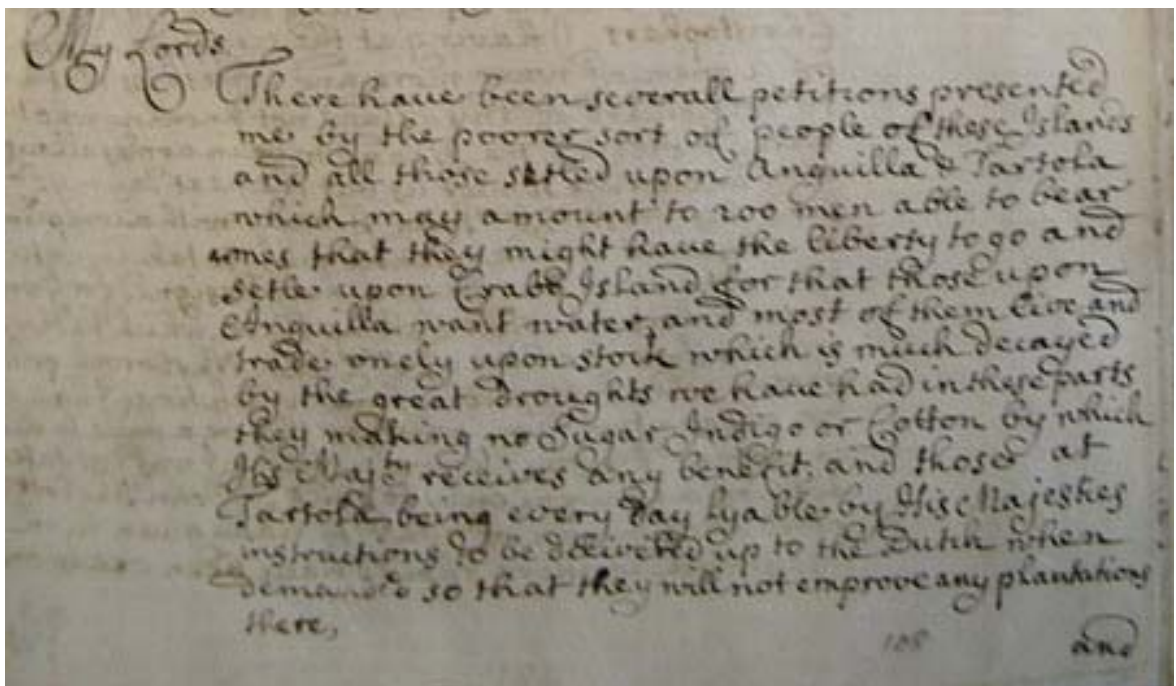 My Lords
There have been severall petitions presented
me by the poorer sort of people of these Islands
and all those setled upon Anguilla & Tartola
which may amount to 200 men able to bear
armes that they might have the liberty to go and
setle upon Crabb Island for that those upon
Anguilla want water, and most of them live and
trade onely upon stock which is much decayed
by the great droughts we have had in these parts
they making no Sugar Indigo or Cotton by which
His Majty receives any benefit, and those at
Tartola being every day lyable by His Majesties
instructions to be delivered up to the Dutch when
demanded so that they will not emprove any plantations
there,
108
and